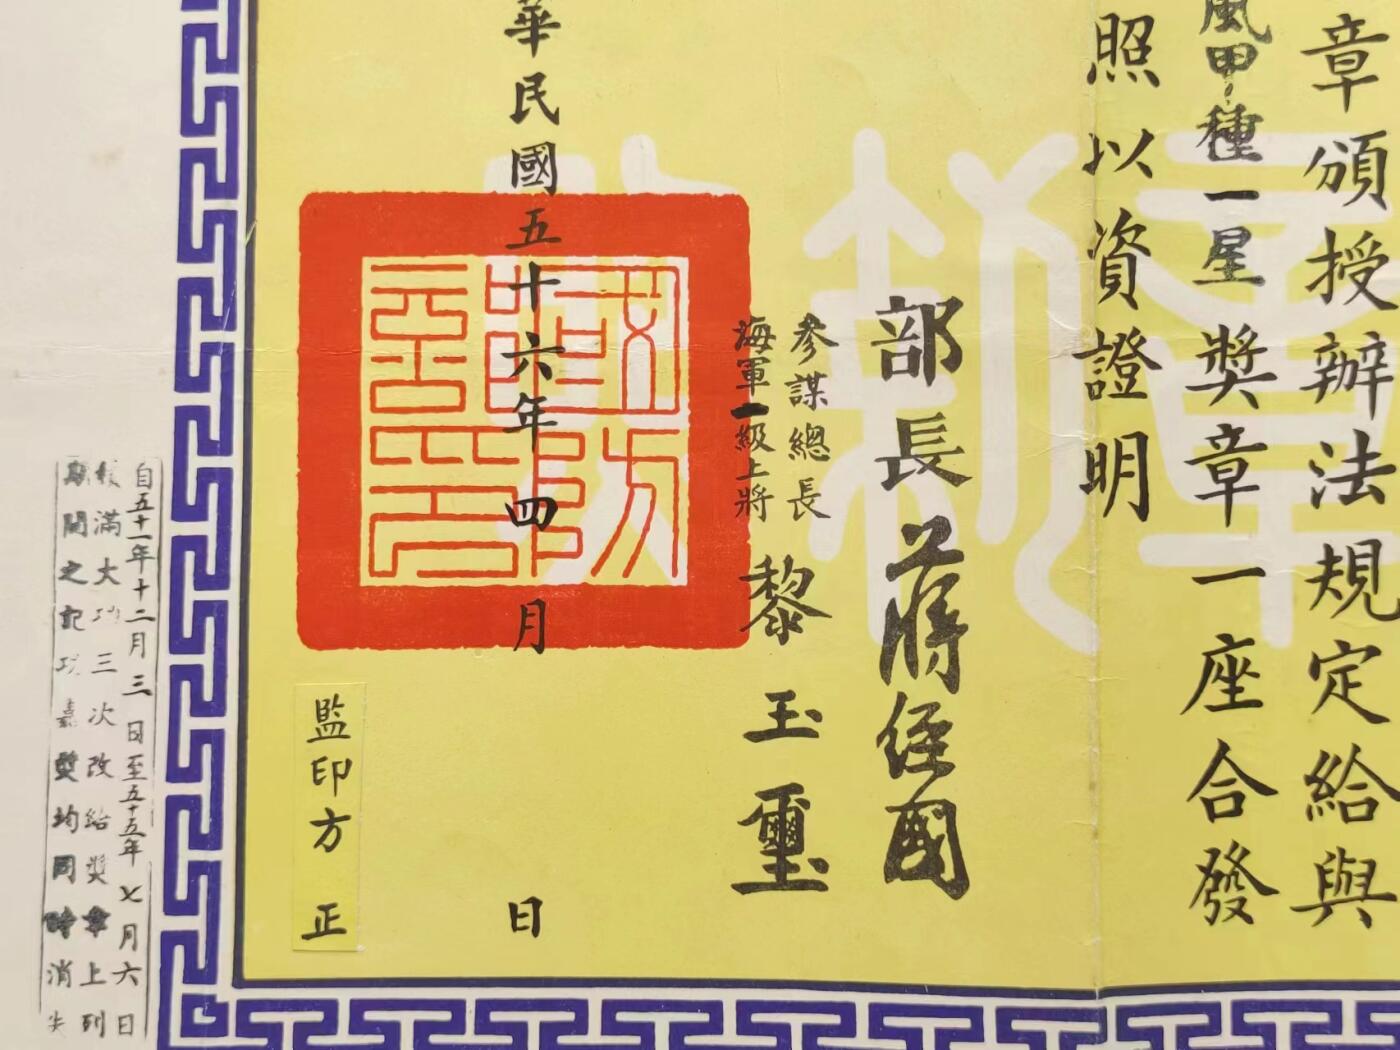 章頒授辦法規定給與
風甲種一星獎章一座合發
照以資證明
部長蔣經國
參謀總長
海軍一級上將
黎玉璽
華民國五十六年四月 日
國防部印
監印方正
自五十一年十二月三日至五十五年七月六日
滿大功三次改給獎章上列
期間之記功嘉獎均同時消失
獎章